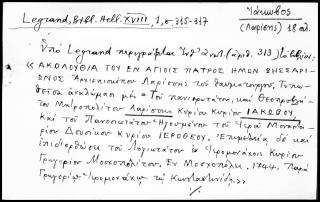 Legrand, Bibl. Hell. XVIII, 1, σ. 315-317
Ἰάκωβος
(Λαρίσης) 18 αἰ.
Ὑπὸ Legrand περιγράφεται (ἀριθ. 313)
« ΑΚΟΛΟΥΘΙΑ ΤΟΥ ΕΝ ΑΓΙΟΙΣ ΠΑΤΡΟΣ ΗΜΩΝ ΒΗΣΣΑΡΙ-
ΩΝΟΣ Ἀρχιεπισκόπου Λαρίσσης τοῦ θαυματουργοῦ. Τυπω-
θεῖσα ἀναλώμασι μὲν Τοῦ πανιερωτάτου, καὶ Θεοπροβλή-
του Μητροπολίτου Λαρίσσης Κυρίου Κυρίου ΙΑΚΩΒΟΥ
Καὶ τοῦ Πανοσιωτάτου Ἡγουμένου τοῦ Ἱεροῦ Μοναστη-
ρίου Δουσίκου Κυρίου ΙΕΡΟΘΕΟΥ. Ἐπιμελείᾳ δὲ καὶ
ἐπιδιορθώσει τοῦ Λογιωτάτου ἐν Ἱερομονάχοις Κυρίου
Γρηγορίου Μοσχοπολίτου. Ἐν Μοσχοπόλει. 1744. Παρὰ
Γρηγορίῳ Ἱερομονάχῳ τῷ Κωνσταντινίδῃ »